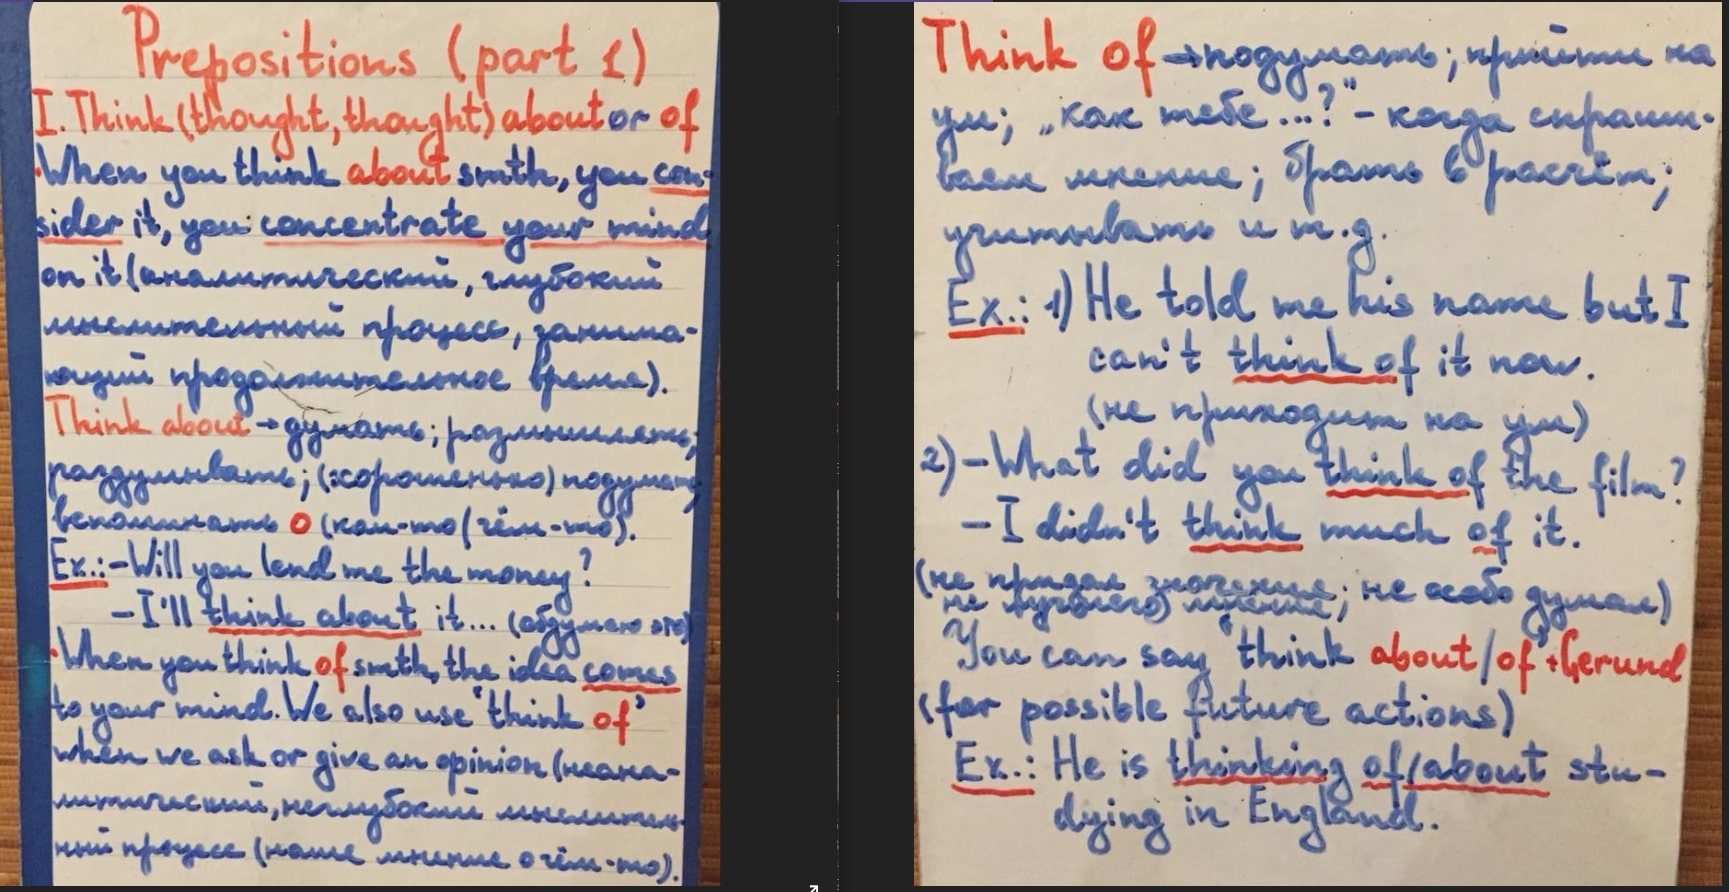 Prepositions (part 1)
I. Think (thought, thought) about or of
·When you think about smth, you con-
sider it, you concentrate your mind
on it (аналитический, глубокий
мыслительный процесс, занима-
ющий продолжительное время).
Think about → думать; размышлять;
раздумывать; (хорошенько) подумать
вспоминать о (ком-то/чём-то).
Ex.: -Will you lend me the money?
- I'll think about it... (обдумаю это)
·When you think of smth, the idea comes
to your mind. We also use 'think of'
when we ask or give an opinion (неана-
литический, неглубокий мыслитель-
ный процесс (наше мнение о чём-то).
Think of → подумать; прийти на
ум; „как тебе...?" - когда спраши-
ваем мнение; брать в расчёт;
учитывать и т.д.
Ex.: 1) He told me his name but I
can't think of it now.
(не приходит на ум)
2) - What did you think of the film?
- I didn't think much of it.
(не придал значение; не особо думал)
не лучшего мнение;
You can say 'think about/of' + Gerund
(for possible future actions)
Ex.: He is thinking of/about stu-
dying in England.